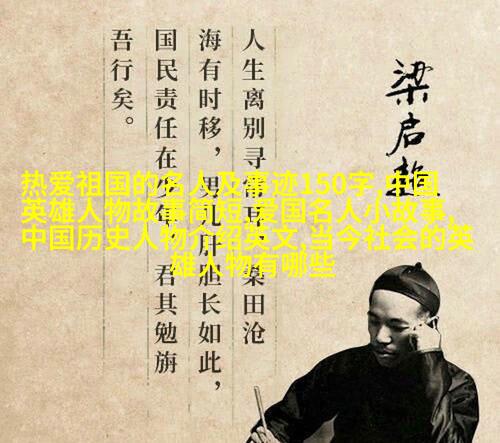 梁启超
人生离别寻常耳，桑田沧
海有时移，男儿肝胆长如此，
国民责任在少年，君其勉旃
吾行矣。
热爱祖国的名人及事迹150字,中国
英雄人物故事简短,爱国名人小故事,
中国历史人物介绍英文,当今社会的英
雄人物有哪些